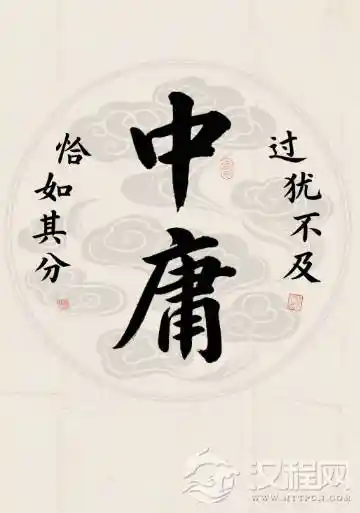 中庸
过犹不及
恰如其分
汉程网
WWW.HTTPCN.COM